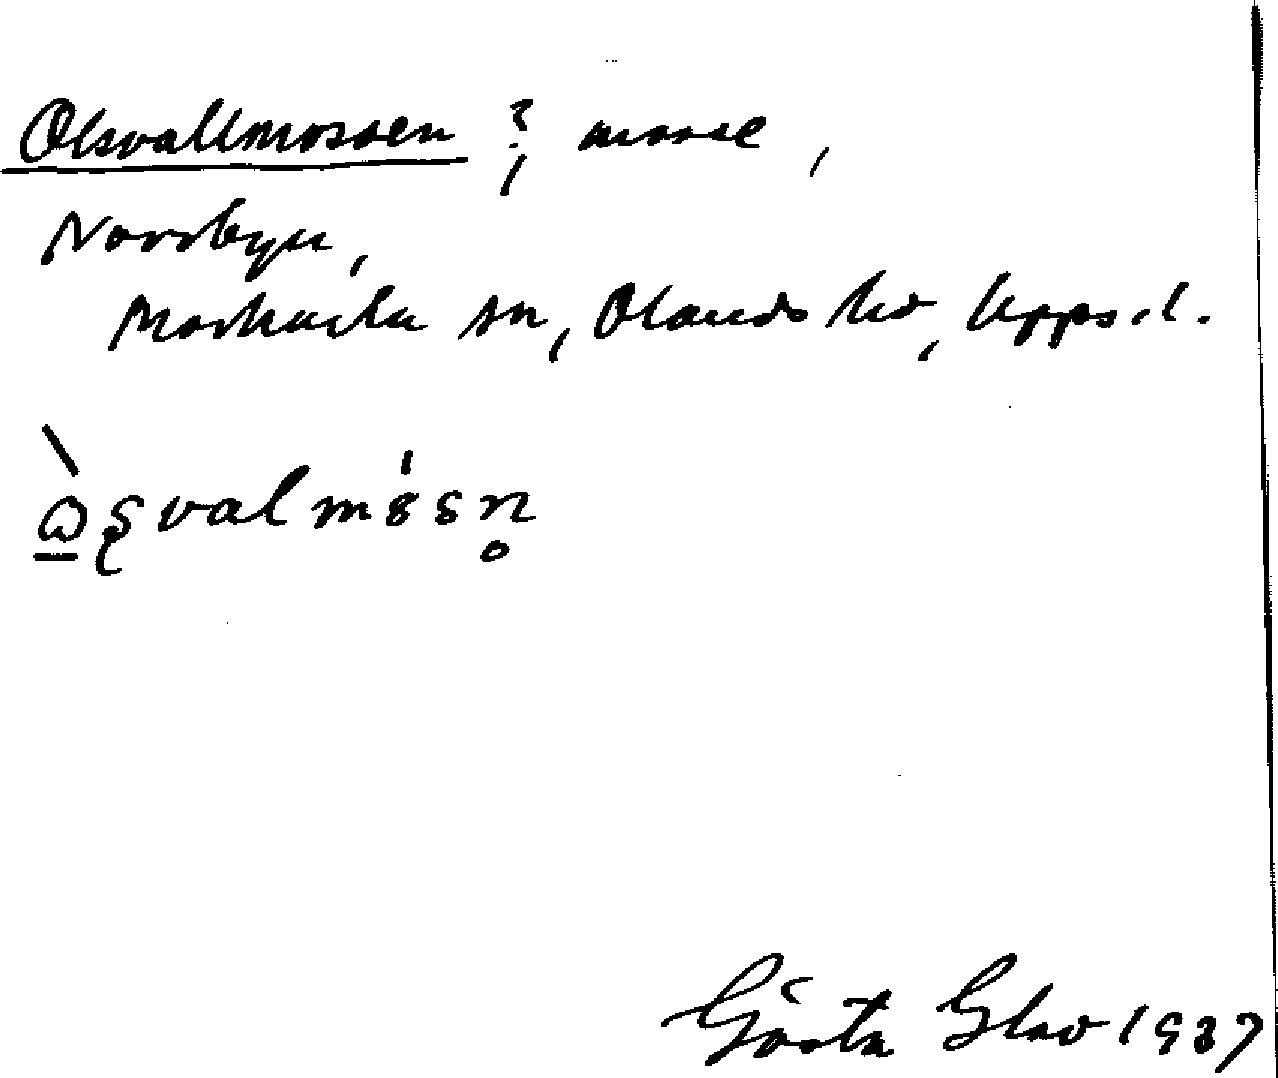 Olsvallmossen ?, mosse,
Norrbyn,
Morkarla sn, Olands hd, Upps. l.
Gösta Glav 1937